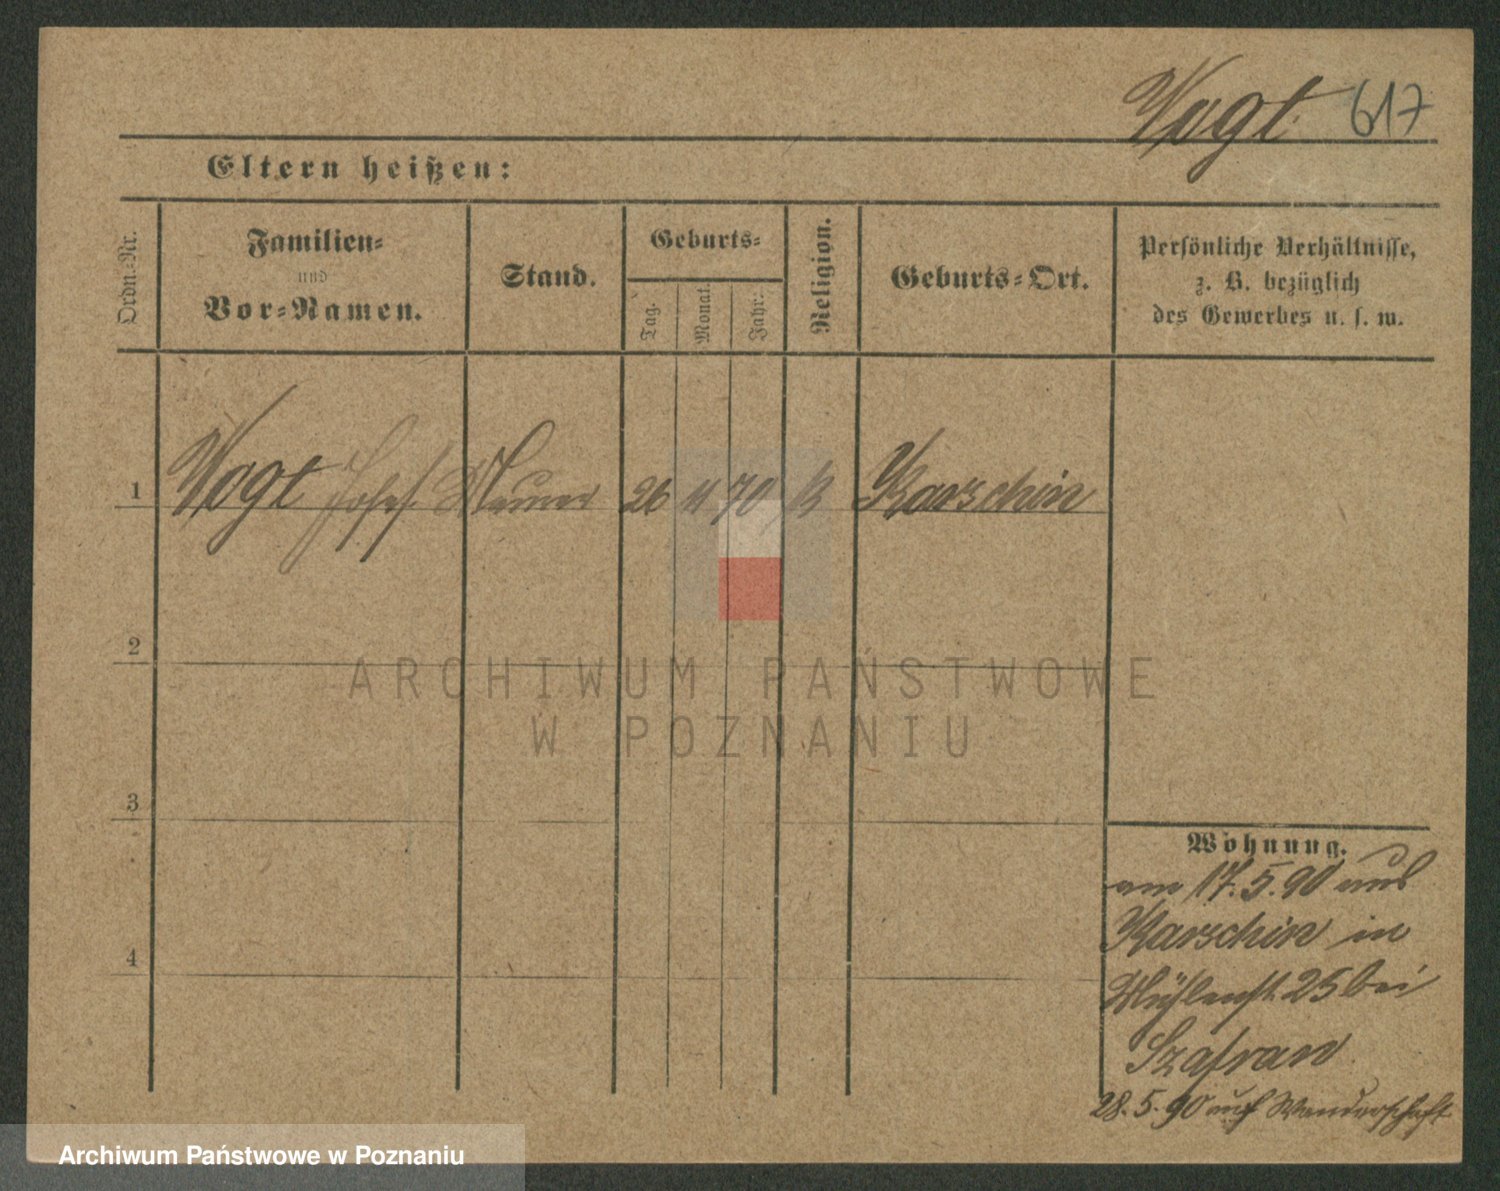 Vogt 617
Eltern heißen:
Ordn.-Nr.
Familien-
und
Vor-Namen.
Stand.
Geburts-
Tag.
Monat.
Jahr.
Religion.
Geburts-Ort.
Persönliche Verhältnisse,
z. B. bezüglich
des Gewerbes u. s. w.
1 Vogt Josef Maurer 26 11 70 k Karschin
2
3
4
Wohnung.
am 17.5.90 aus
Karschin in
Mühlenst. 25 bei
Szafran
28.5.90 auf Wanderschaft
ARCHIWUM PAŃSTWOWE
W POZNANIU
Archiwum Państwowe w Poznaniu